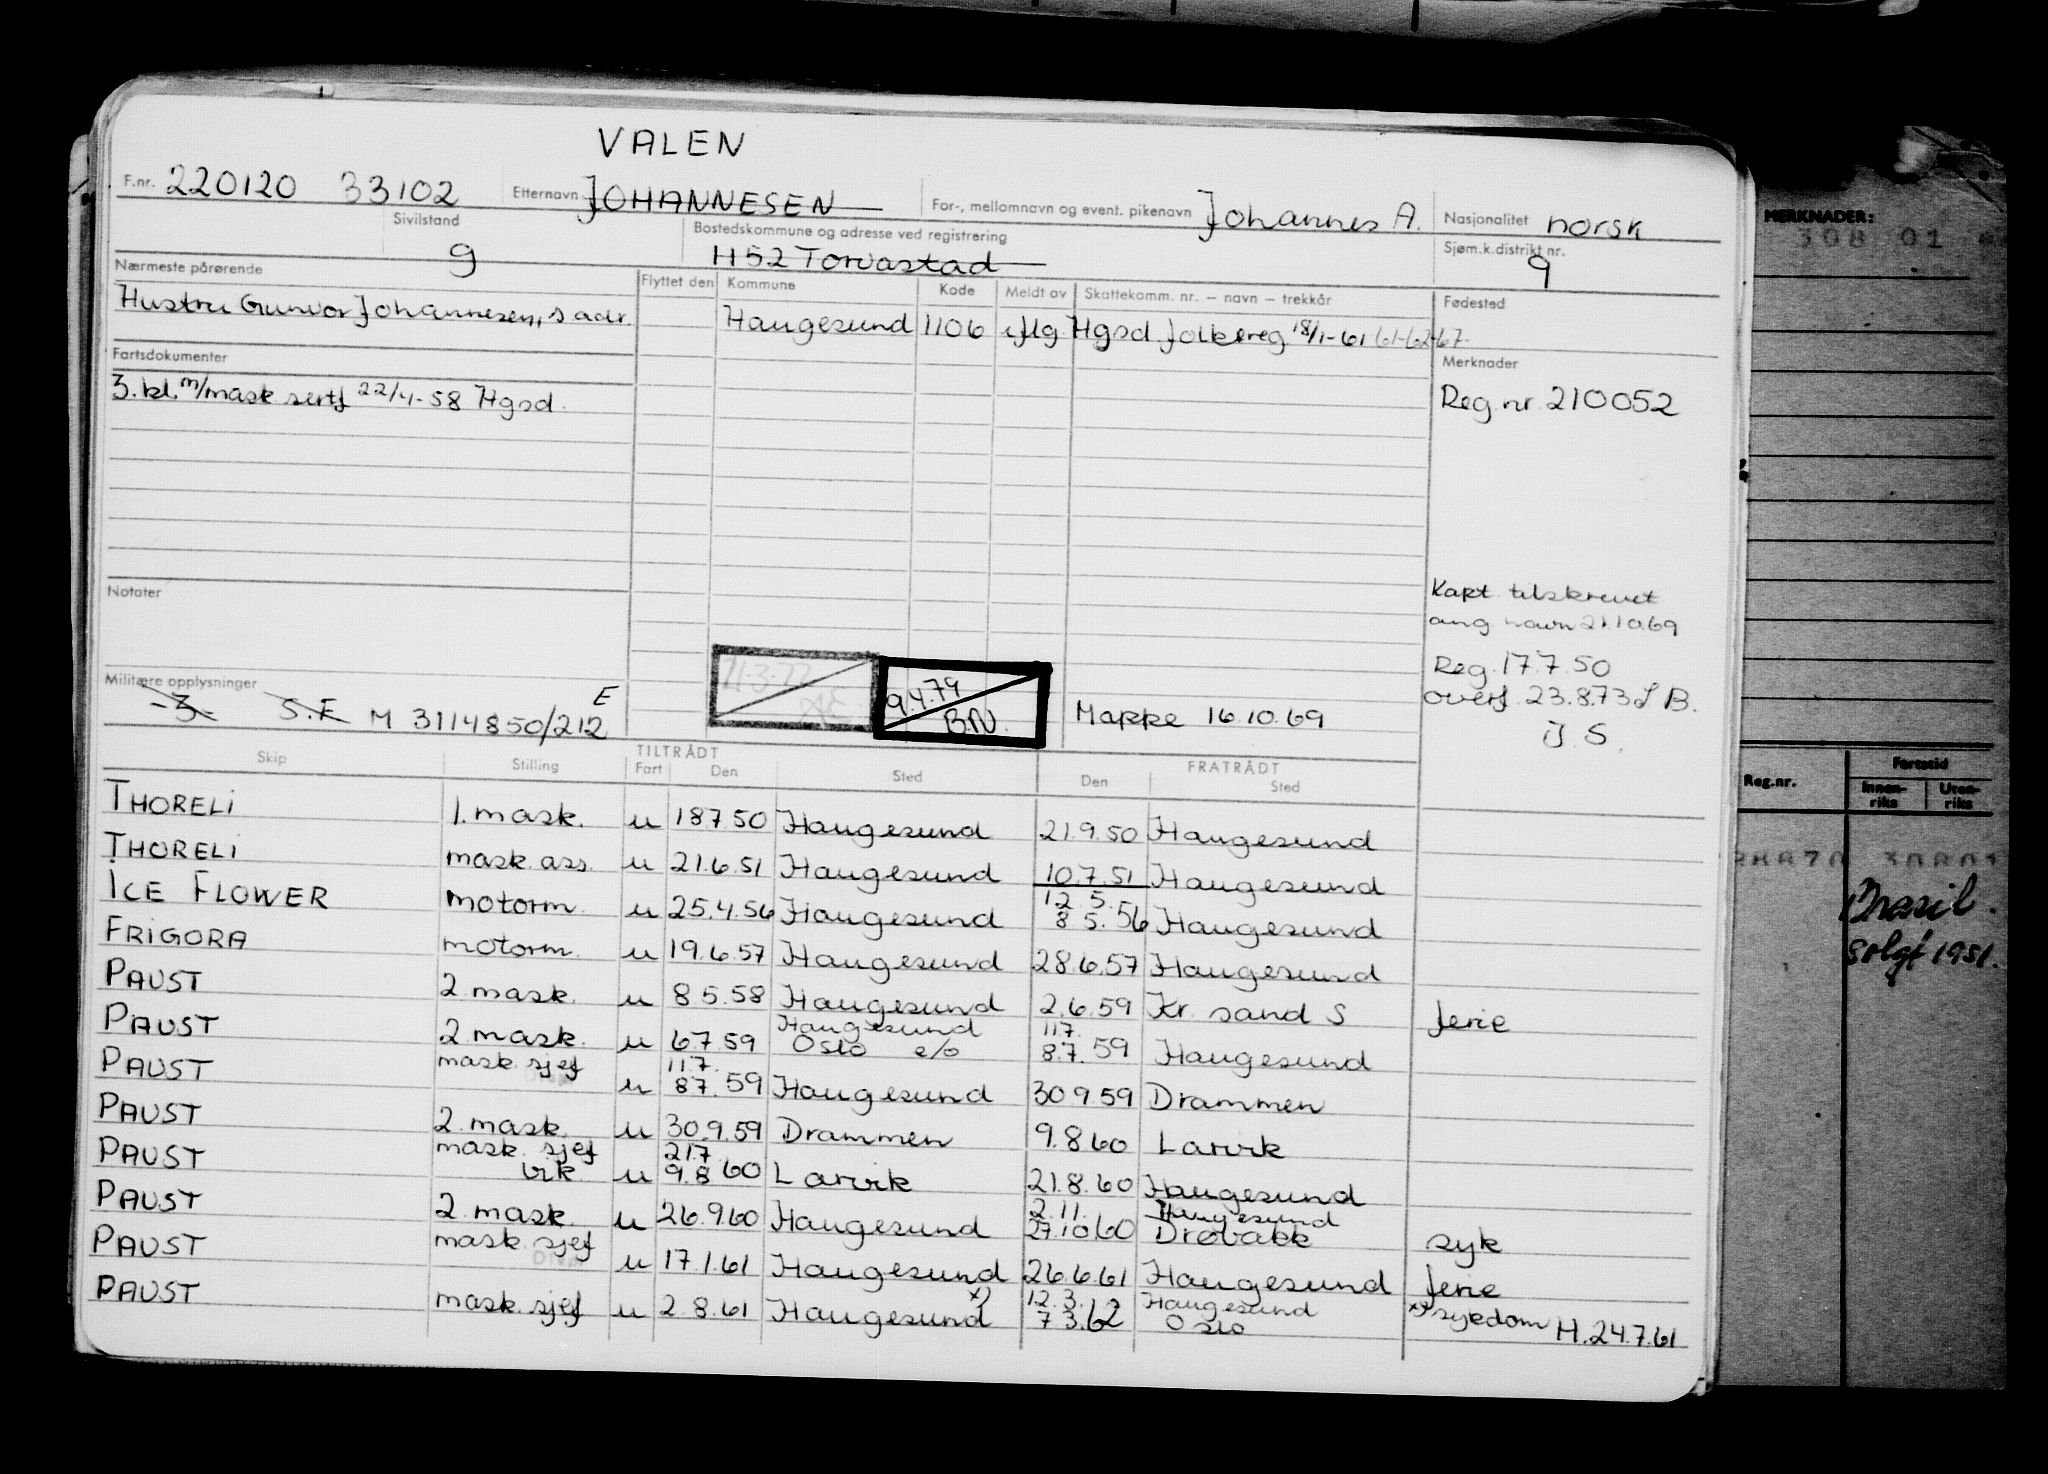 VALEN
F.nr. 220120 33102 Etternavn JOHANNESEN For-, mellomnavn og event. pikenavn Johannes A. Nasjonalitet norsk
Sivilstand 9 Bostedskommune og adresse ved registrering H52 Torvastad Sjøm.k.distrikt nr. 9
Nærmeste pårørende Flyttet den Kommune Kode Meldt av Skattekomm. nr. – navn – trekkår Fødested
Hustru Gunvor Johannesen, s adr. Haugesund 1106 Hgsd folkereg 18/1-61 61-62-67.
Fartsdokumenter Merknader
3. kl. m/mask sertf 22/4-58 Hgsd. Reg. nr. 210052
Notater
Kart tilskrevet
ang. navn 21.10.69
Reg. 17.7.50
overf. 23.8.73 B.
J. S.
Militære opplysninger
-3- S.F M 3114850/212 E
9.4.79 B.N. Mappe 16.10.69
Skip Stilling TILTRÅDT Fart Den Sted FRATRÅDT Den Sted
THORELI 1. mask. u 18 7.50 Haugesund 21.9.50 Haugesund
THORELI mask. ass. u 21.6.51 Haugesund 10.7.51 Haugesund
ICE FLOWER motorm. u 25.4.56 Haugesund 12.5. 8 5.56 Haugesund
FRIGORA motorm. u 19.6.57 Haugesund 28.6.57 Haugesund
PAUST 2. mask. u 8 5.58 Haugesund 2.6.59 Kr. sand S ferie
PAUST 2. mask. u 6 7.59 Haugesund Oslo e/o 11.7. 8.7. 59 Haugesund
PAUST mask. sjef u 11.7. 8.7. 59 Haugesund 30 9.59 Drammen
PAUST 2. mask. u 30.9.59 Drammen 9.8 60 Larvik
PAUST mask. sjef vik. u 21.7. 9.8 60 Larvik 21.8.60 Haugesund
PAUST 2. mask. u 26.9.60 Haugesund 2.11. 27.10.60 Haugesund Drøbakk syk
PAUST mask. sjef u 17.1.61 Haugesund 26.6.61 Haugesund ferie
PAUST mask. sjef u 2.8.61 Haugesund x) 12.3. 7 3.62 Haugesund Oslo x) sykdom H. 24.7.61
MERKNADER:
308 01
Reg.nr. Fartstid
Innenriks Utenriks
Brasil.
Solgt 1951.